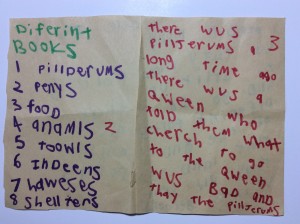 Diferint
Books
1 pillderums
2 penys
3 food
4 anamls 2
5 toowls
6 indeens
7 haweses
8 shelltens
there wus
pilljerums 3
long time ago
there wus a
qween who
told them what
cherch to go
to the qween
wus bad and
thay the pilljerums